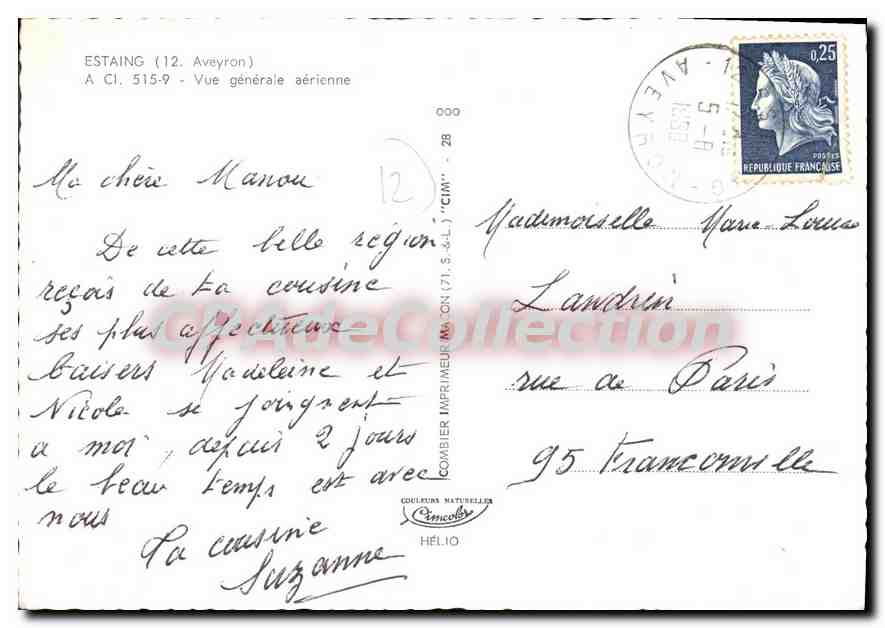 ESTAING (12. Aveyron)
A CI. 515-9 - Vue générale aérienne
Ma chère Manou
De cette belle région
reçois de ta cousine
ses plus affectueux
baisers Madeleine et
Nicole se joignent
a moi, depuis 2 jours
le beau temps est avec
nous
Ta cousine
Suzanne
12
COMBIER IMPRIMEUR MACON (71. S.-&-L.) "CIM" - 28 000
COULEURS NATURELLES
Cimcolor
HÉLIO
AVEYRON
5-8
1969
0,25
POSTES
REPUBLIQUE FRANÇAISE
Mademoiselle Marie-Louise
Landrin
rue de Paris
95 Franconville
CPAdeCollection